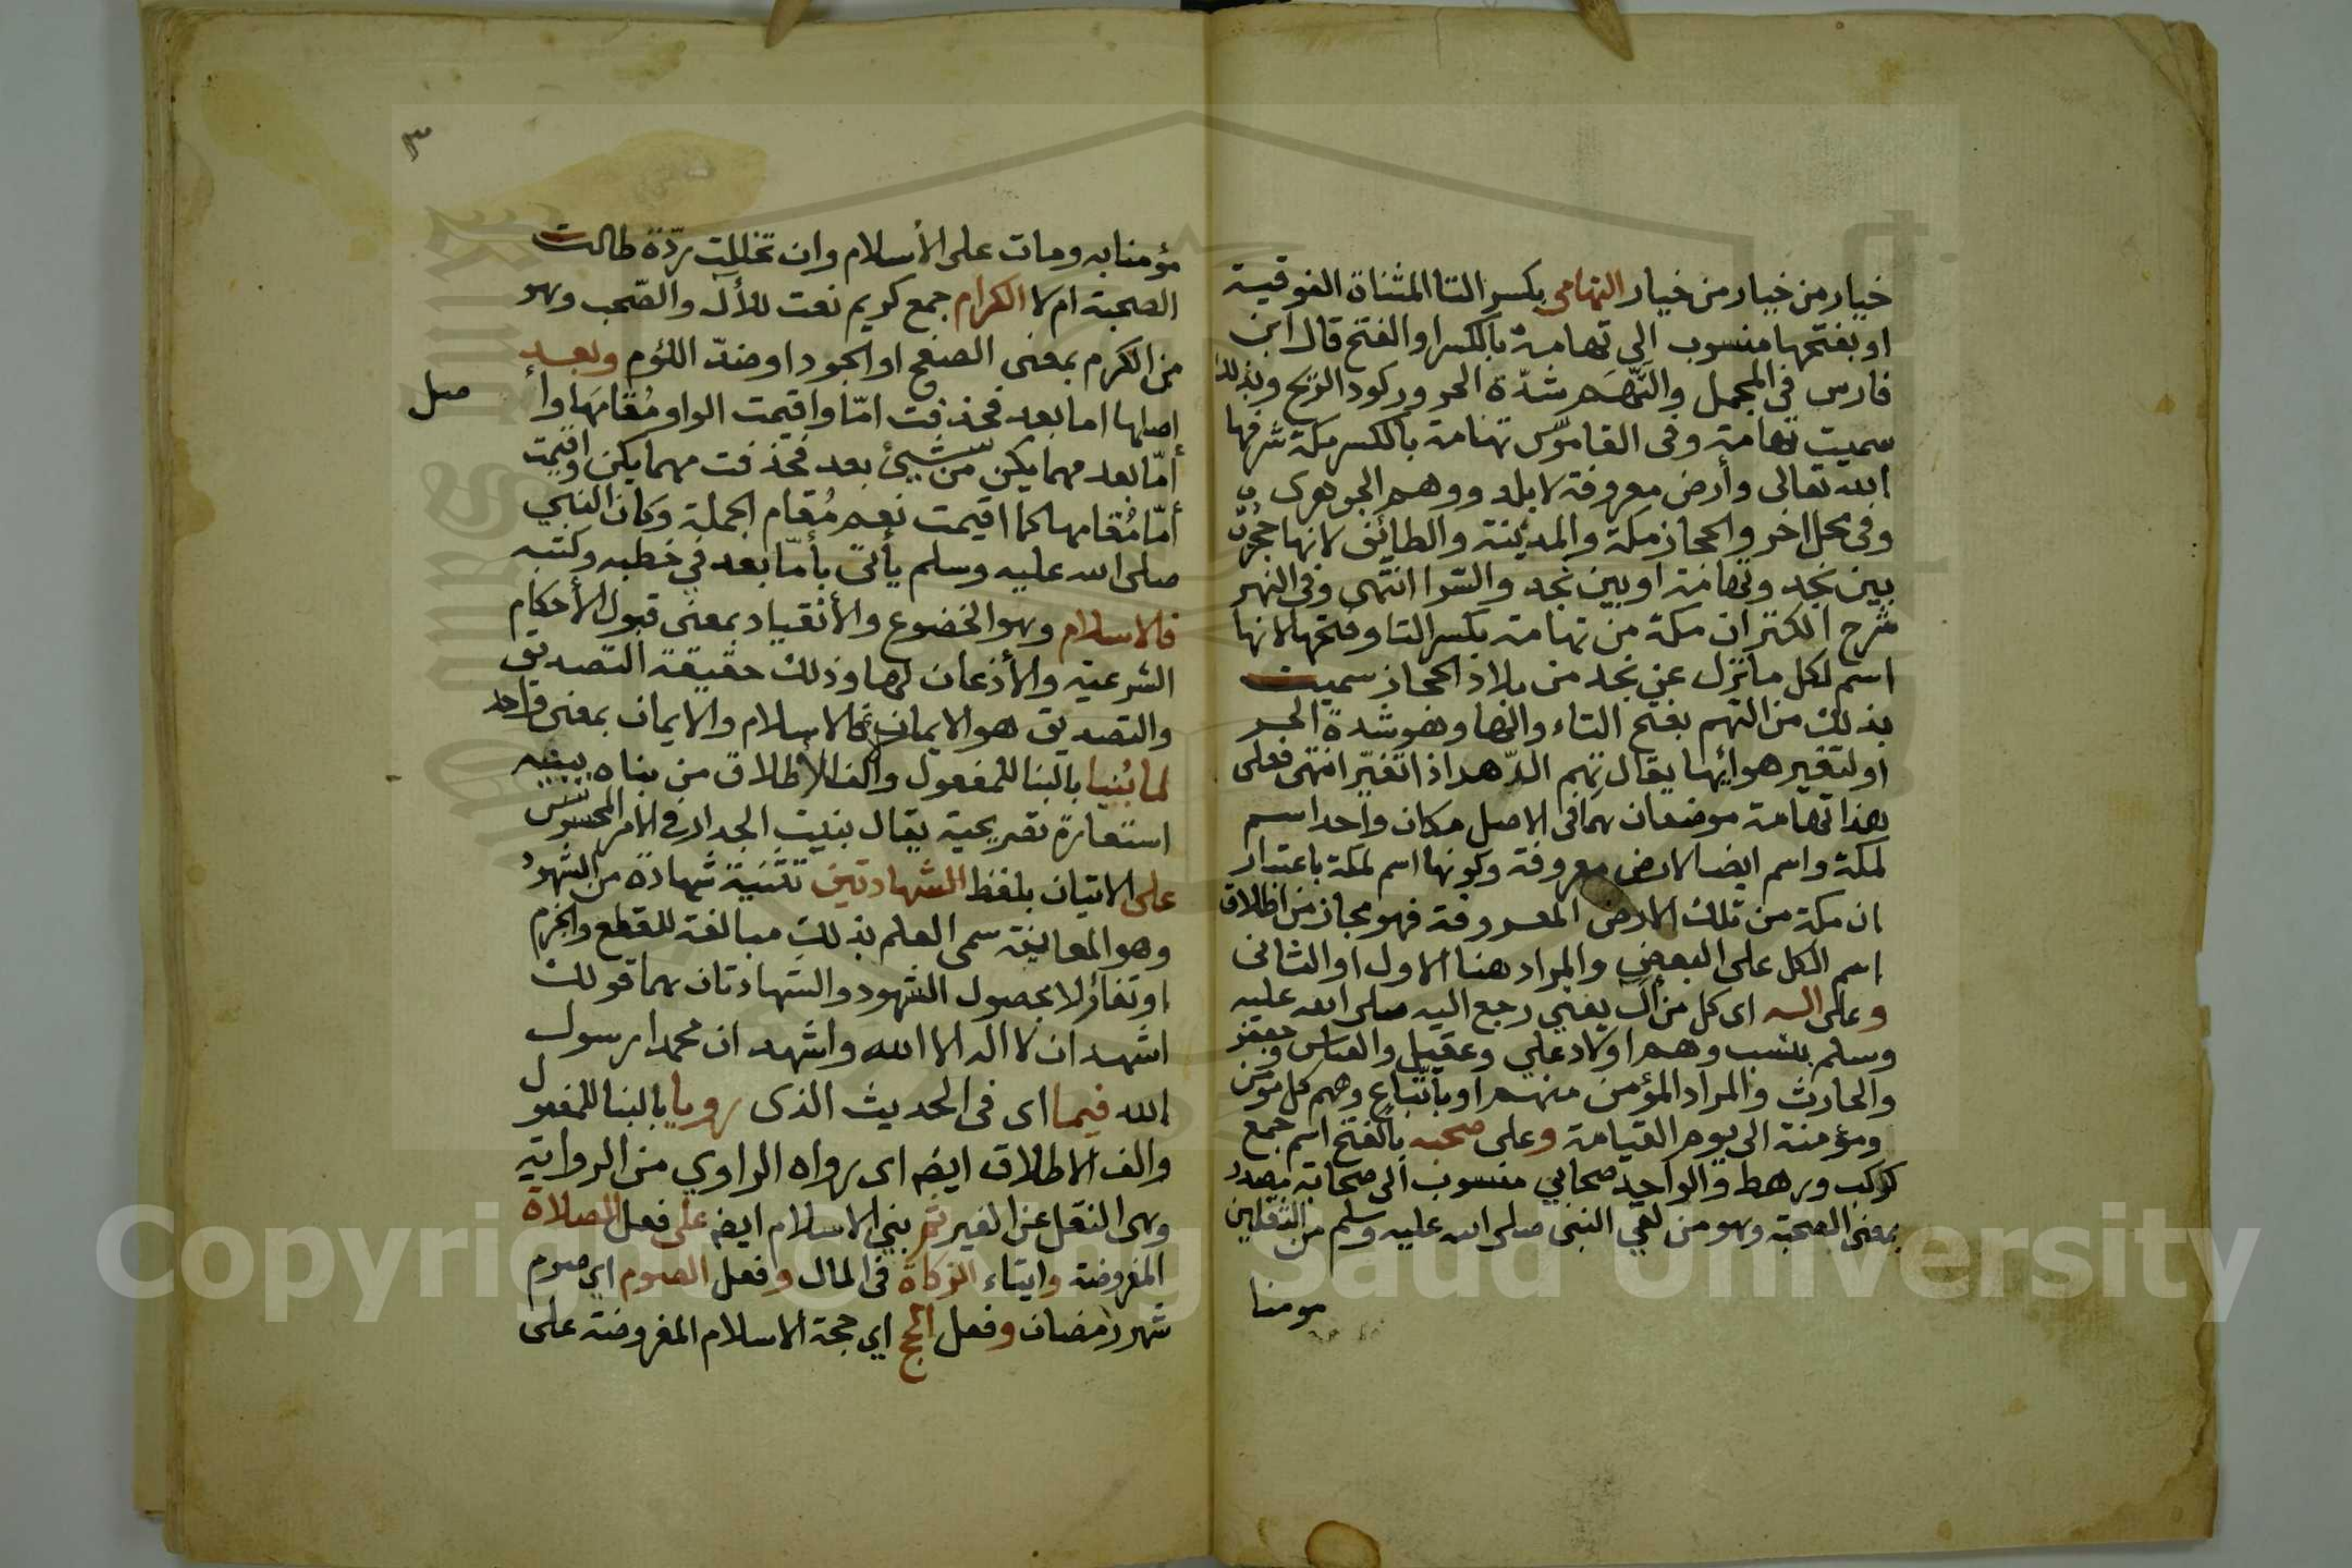 خيار من خيار من خيار التهامي بكسر التا المثناة الفوقية
او بفتحها منسوب الى تهامة بالكسر او الفتح قال ابن
فارس في المجمل والتَّهَم شدّة الحر وركود الريح وبذلك
سميت تهامة وفى القاموس تهامة بالكسر مكة شرفها
الله تعالى وأرض معروفة لا بلد ووهم الجوهرى
وفى محل اخر والحجاز مكة والمدينة والطائف لانها حجزت
بين نجد وتهامة او بين نجد والسرا انتهى وفى النهر
شرح الكنز ان مكة من تهامة بكسر التا وفتحها لانها
اسم لكل ما نزل عن نجد من بلاد الحجاز سميت
بذلك من التهم بفتح التاء والها وهو شدة الحر
او لتغير هوائها يقال تهم الدّهن اذا تغيّر انتهى فعلى
هذا تهامة موضعان هما فى الاصل مكان واحد اسم
لمكة واسم ايضا لارض معروفة وكونها اسم لمكة باعتبار
ان مكة من تلك الارض المعروفة فهو مجاز من اطلاق
اسم الكل على البعض والمراد هنا الاول او الثانى
وعلى اله اى كل من آل يعني رجع اليه صلى الله عليه
وسلم بنسب وهم اولاد علي وعقيل والعباس وجعفر
والحارث والمراد المؤمن منهم او باتّباع وهم كل مؤمن
ومؤمنة الى يوم القيامة وعلى صحبه بالفتح اسم جمع
كركب ورهط والواحد صحابي منسوب الى صحابة مصدر
بمعنى الصحبة وهو من لقي النبي صلى الله عليه وسلم من الثقلين
مومنا
٣
مؤمنا به ومات على الأسلام وان تخللت ردّة طالت
الصحبة ام لا الكرام جمع كريم نعت للأل والصّحب وهو
من الكرم بمعنى الصفح او الجود او ضدّ اللؤم وبعد
اصلها اما بعد فحذفت امّا واقيمت الواو مُقامَها وأ
صل
أمّا بعد مهما يكن من شيئ بعد فحذفت مهما يكن واقيمت
أمّا مُقامها كما اقيمت نعم مُقام الجملة وكان النبي
صلى الله عليه وسلم يأتى بأمّا بعد في خطبه وكتبه
فالاسلام وهو الخضوع والأنقياد بمعنى قبول الأحكام
الشرعية والأذعان لها وذلك حقيقة التصديق
والتصديق هو الايمان فالاسلام والايمان بمعنى واحد
لما بُنيا بالبنا للمفعول والف الأطلاق من بناه يبنيه
استعارة تصريحية يقال بنيت الجدار في الامر المحسوس
على الاتيان بلفظ الشهادتين تثنية شهادة من الشهود
وهو المعاينة سمى العلم بذلك مبالغة للقطع والجزم
او تفاؤلا بحصول الشهود والشهادتان هما قولك
اشهد ان لا اله الا الله واشهد ان محمدا رسول
الله فيما اى فى الحديث الذى رويا بالبنا للمفعول
والف الاطلاق ايضه اى رواه الراوي من الرواية
وهى النقل عن الغير ثم بني الاسلام ايضه على فعل الصلاة
المفروضة وايتاء الزكاة فى المال وفعل الصوم اي صوم
شهر رمضان وفعل الحج اي حجة الاسلام المفروضة على
Copyright © King Saud University